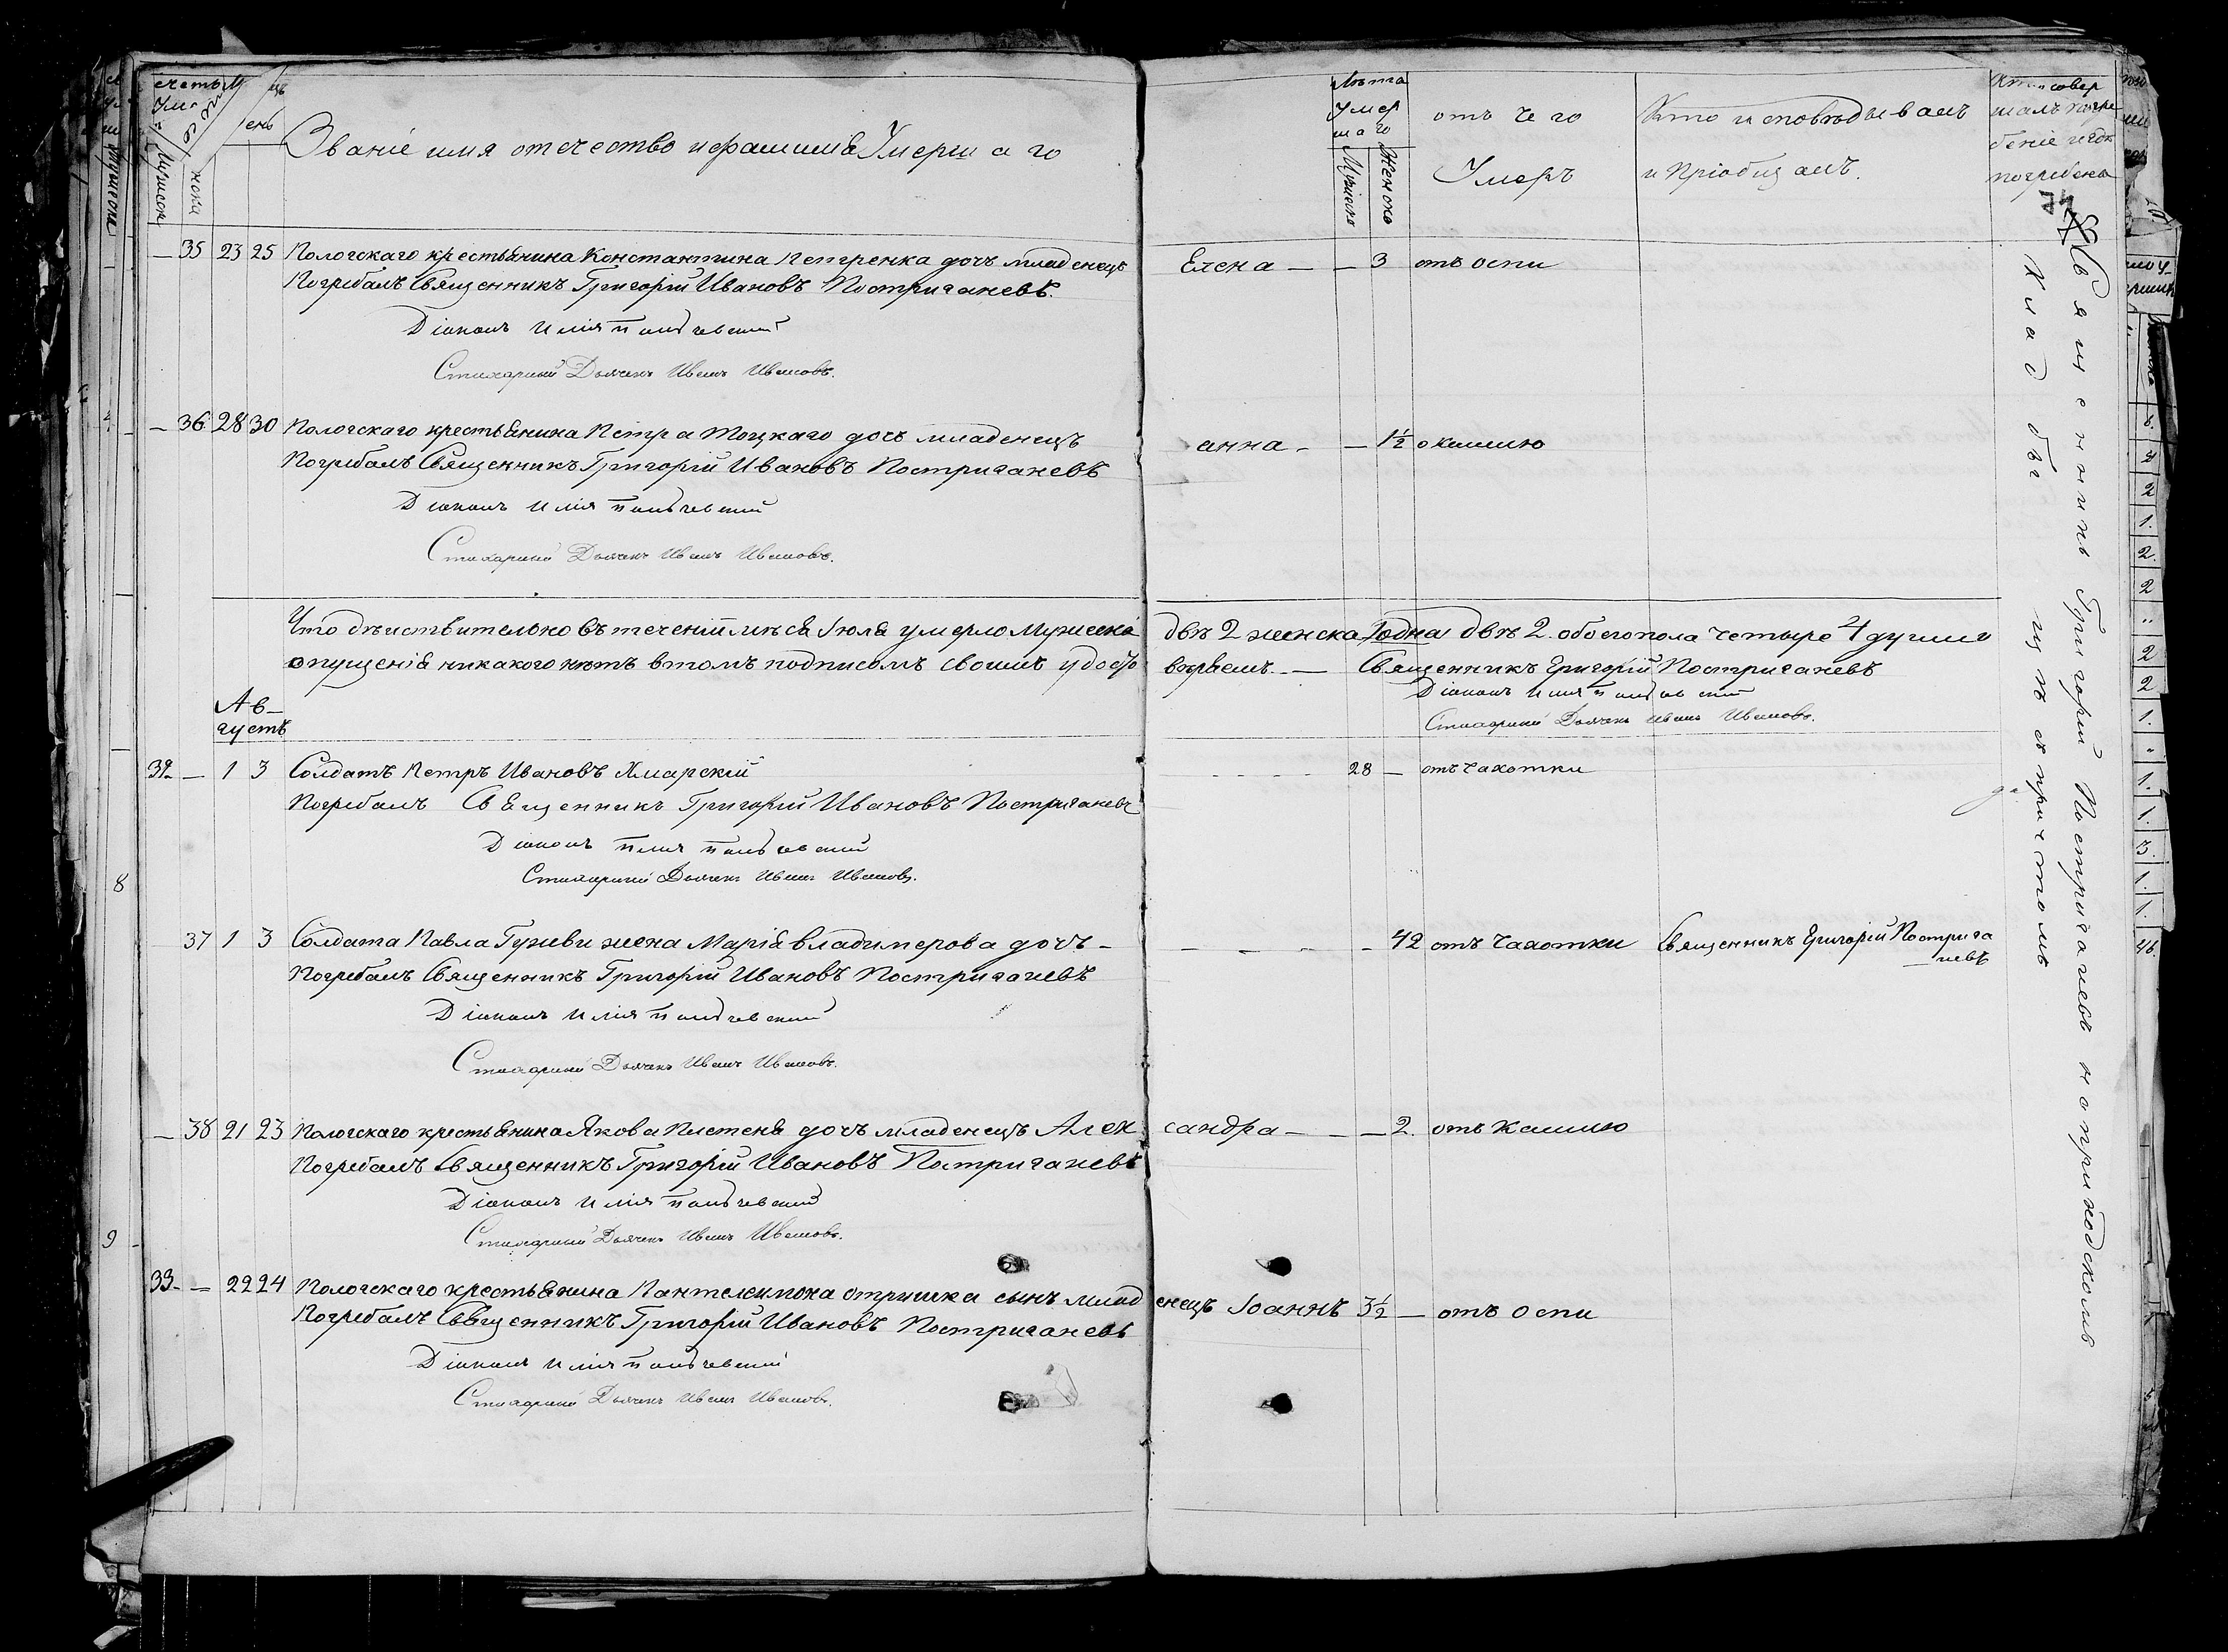 Званіе имя отечество и фамиліа Умершаго
Лѣта Умершаго
Мужеск Женско
отъ чего Умеръ
Кто исповѣдывалъ и Пріобщалъ.
погребенъ
— 35 23 25 Пологскаго крестьянина Константина Петренка дочъ младенецъ Елена — — 3 отъ оспи
Погребалъ Священникъ Григорій Ивановъ Постриганевъ.
Діаконъ Илія
Стихарный Дьячекъ Иванъ Ивановъ.
— 36 28 30 Пологскаго крестьянина Петра Тоцкаго дочъ младенецъ анна — — 1½ о кашлю
Погребалъ Священникъ Григорій Ивановъ Постриганевъ
Діаконъ Илія
Стихарный Дьячекъ Иванъ Ивановъ.
Что дѣиствительно въ теченіи мѣся Іюля умерло Мужеска двѣ 2 женска двѣ 2. обоего пола четыре 4 души
опущеніа никакого нѣтъ втомъ подписомъ своимъ удосто вѣраемъ. — Священникъ Григорій Постриганевъ
Діаконъ Илія
Стихарный Дьячекъ Иванъ Ивановъ.
Ав-
густъ
— 1 3 Солдатъ Петръ Ивановъ Хмарскій 28 — отъ чахотки
Погребалъ Священникъ Григорій Ивановъ Постриганевъ
Діаконъ Илія
Стихарный Дьячекъ Иванъ Ивановъ.
37 1 3 Солдата Павла жена Маріа владимерова дочъ — 42 отъ чахотки Священникъ Григорій Пострига
невъ
Погребалъ Священникъ Григорій Ивановъ Постриганевъ
Діаконъ Илія
Стихарный Дьячекъ Иванъ Ивановъ.
— 38 21 23 Пологскаго крестьянина Якова Плетена дочъ младенецъ Алек сандра — — — 2. отъ Кашлю
Погребалъ Священникъ Григорій Ивановъ Постриганевъ
Діаконъ Илія
Стихарный Дьячекъ Иванъ Ивановъ.
— 22 24 Пологскаго крестьянина Пантелеимона сынъ млад енецъ Іоаннъ 3½ — отъ Оспи
Погребалъ Священникъ Григорій Ивановъ Постриганевъ
Діаконъ Илія
Стихарный Дьячекъ Иванъ Ивановъ.
Священникъ Григорій Постриганевъ на приходскомъ
Кладби щѣ съ причтомъ
8
9